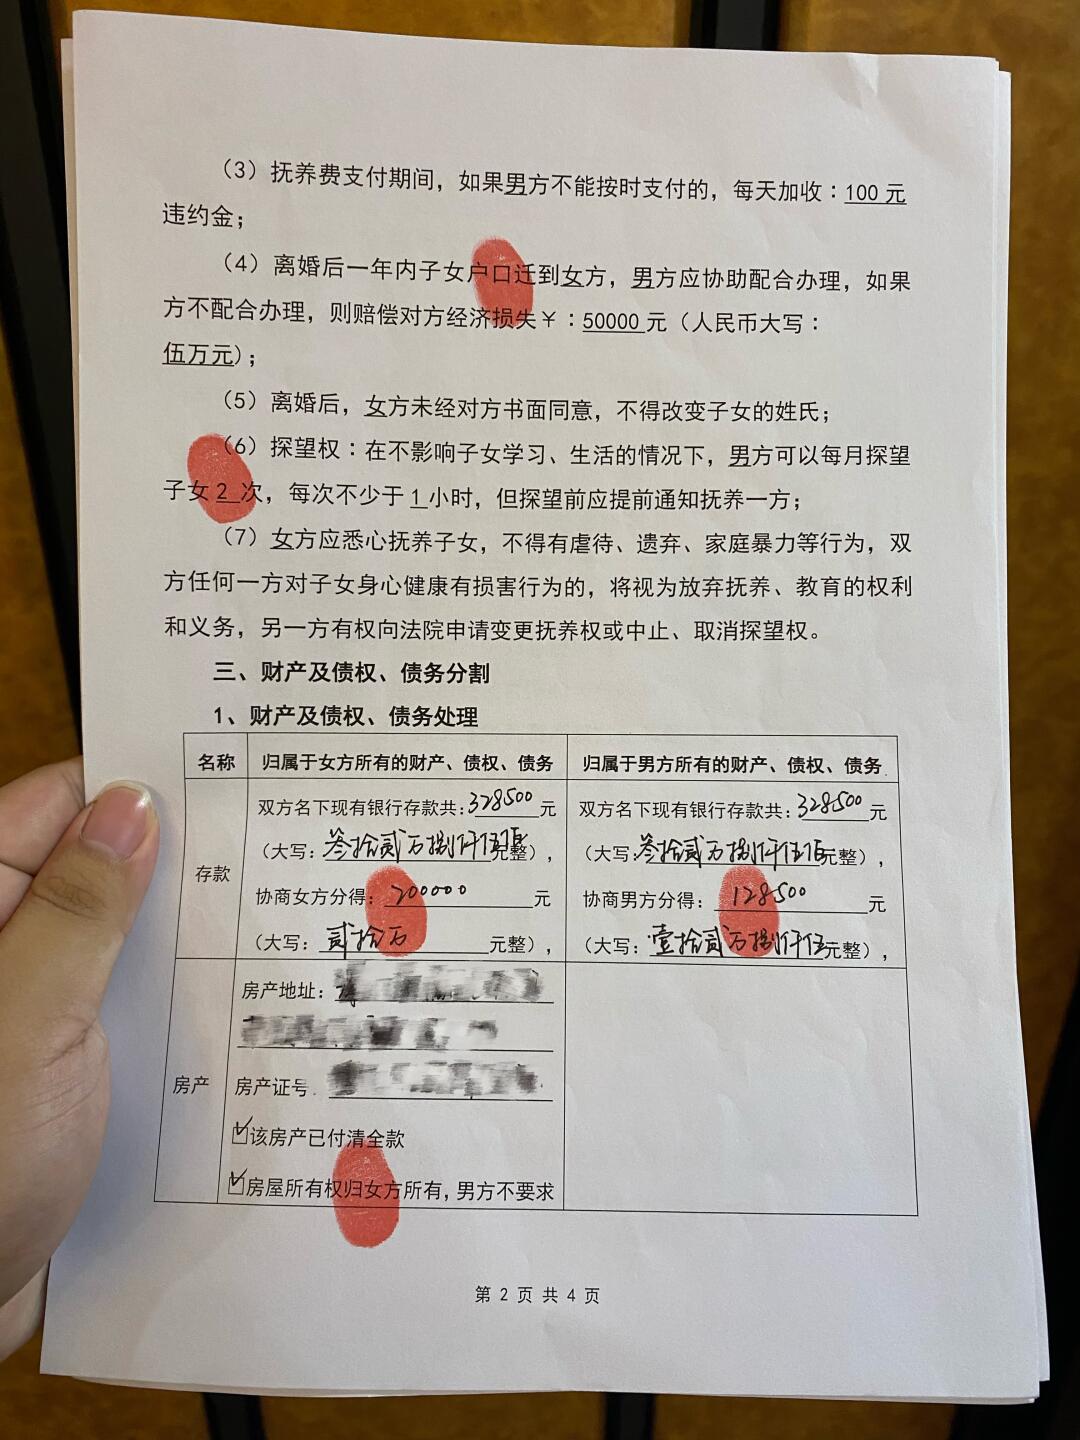 （3）抚养费支付期间，如果男方不能按时支付的，每天加收：100 元
违约金；
（4）离婚后一年内子女户口迁到女方，男方应协助配合办理，如果
方不配合办理，则赔偿对方经济损失￥：50000 元（人民币大写：
伍万元）；
（5）离婚后，女方未经对方书面同意，不得改变子女的姓氏；
（6）探望权：在不影响子女学习、生活的情况下，男方可以每月探望
子女 2 次，每次不少于 1 小时，但探望前应提前通知抚养一方；
（7）女方应悉心抚养子女，不得有虐待、遗弃、家庭暴力等行为，双
方任何一方对子女身心健康有损害行为的，将视为放弃抚养、教育的权利
和义务，另一方有权向法院申请变更抚养权或中止、取消探望权。
三、财产及债权、债务分割
1、财产及债权、债务处理
名称 归属于女方所有的财产、债权、债务 归属于男方所有的财产、债权、债务
存款
双方名下现有银行存款共：328500 元
（大写：叁拾贰万捌仟伍佰元整），
协商女方分得：200000 元
（大写：贰拾万 元整），
双方名下现有银行存款共：328500 元
（大写：叁拾贰万捌仟伍佰元整），
协商男方分得：128500 元
（大写：壹拾贰万捌仟伍元整），
房产
房产地址：
房产证号
☑该房产已付清全款
☑房屋所有权归女方所有，男方不要求
第 2 页 共 4 页